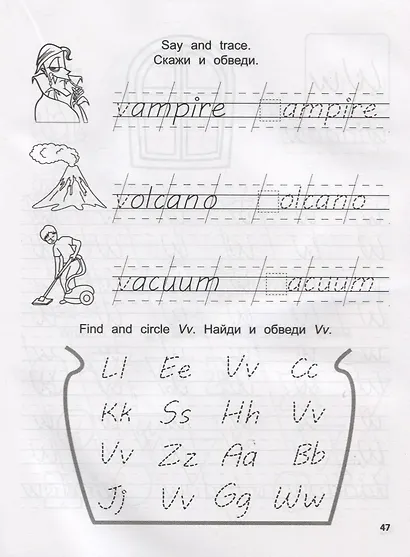 Say and trace.
Скажи и обведи.
vampire ampire
volcano olcano
vacuum acuum
Find and circle Vv. Найди и обведи Vv.
Ll Ee Vv Cc
Kk Ss Hh Vv
Vv Zz Aa Bb
Jj Vv Gg Ww
47